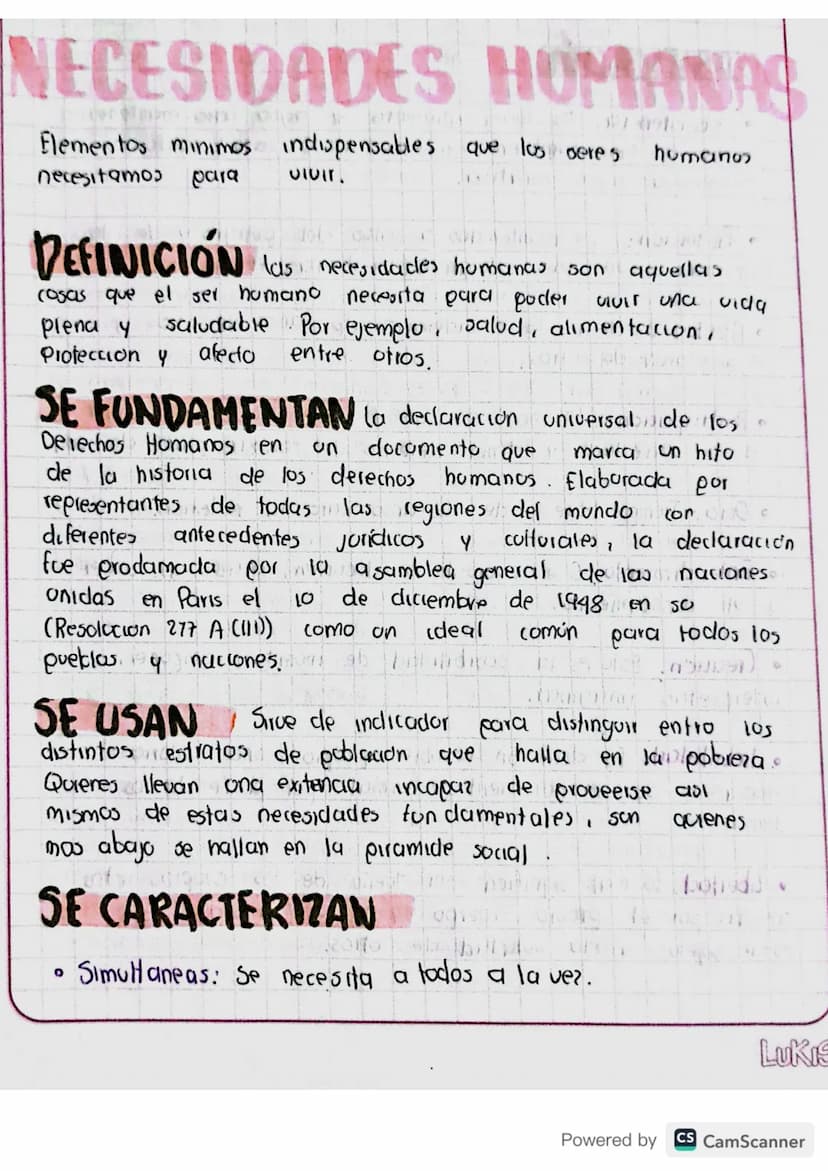 NECESIDADES HUMANAS
Elementos minimos indispensables que los seres humanos
necesitamos para vivir.
DEFINICIÓN las necesidades humanas son aquellas
cosas que el ser humano necesita para poder vivir una vida
plena y saludable. Por ejemplo, salud, alimentacion,
Protección y afecto entre otros.
SE FUNDAMENTAN la declaración universal de los
Derechos Homanos en un documento que marca un hito
de la historia de los derechos humanos. Elaborada por
representantes de todas las regiones del mundo con
diferentes antecedentes jurídicos y culturales, la declaración
fue prodamada por la asamblea general de las naciones
unidas en París el 10 de diciembre de 1948 en so
(Resolucion 277 A (III)) como un ideal común para todos los
pueblos y naciones.
SE USAN Sirve de indicador para distinguir entro los
distintos estratos de población que halla en la pobreza.
Quienes llevan una exitencia incapaz de proveerse asi
mismos de estas necesidades fundamentales, son quienes
mas abajo se hallan en la piramide social.
SE CARACTERIZAN
• Simultaneas: se necesita a todos a la vez.
LuKis
Powered by CS CamScanner